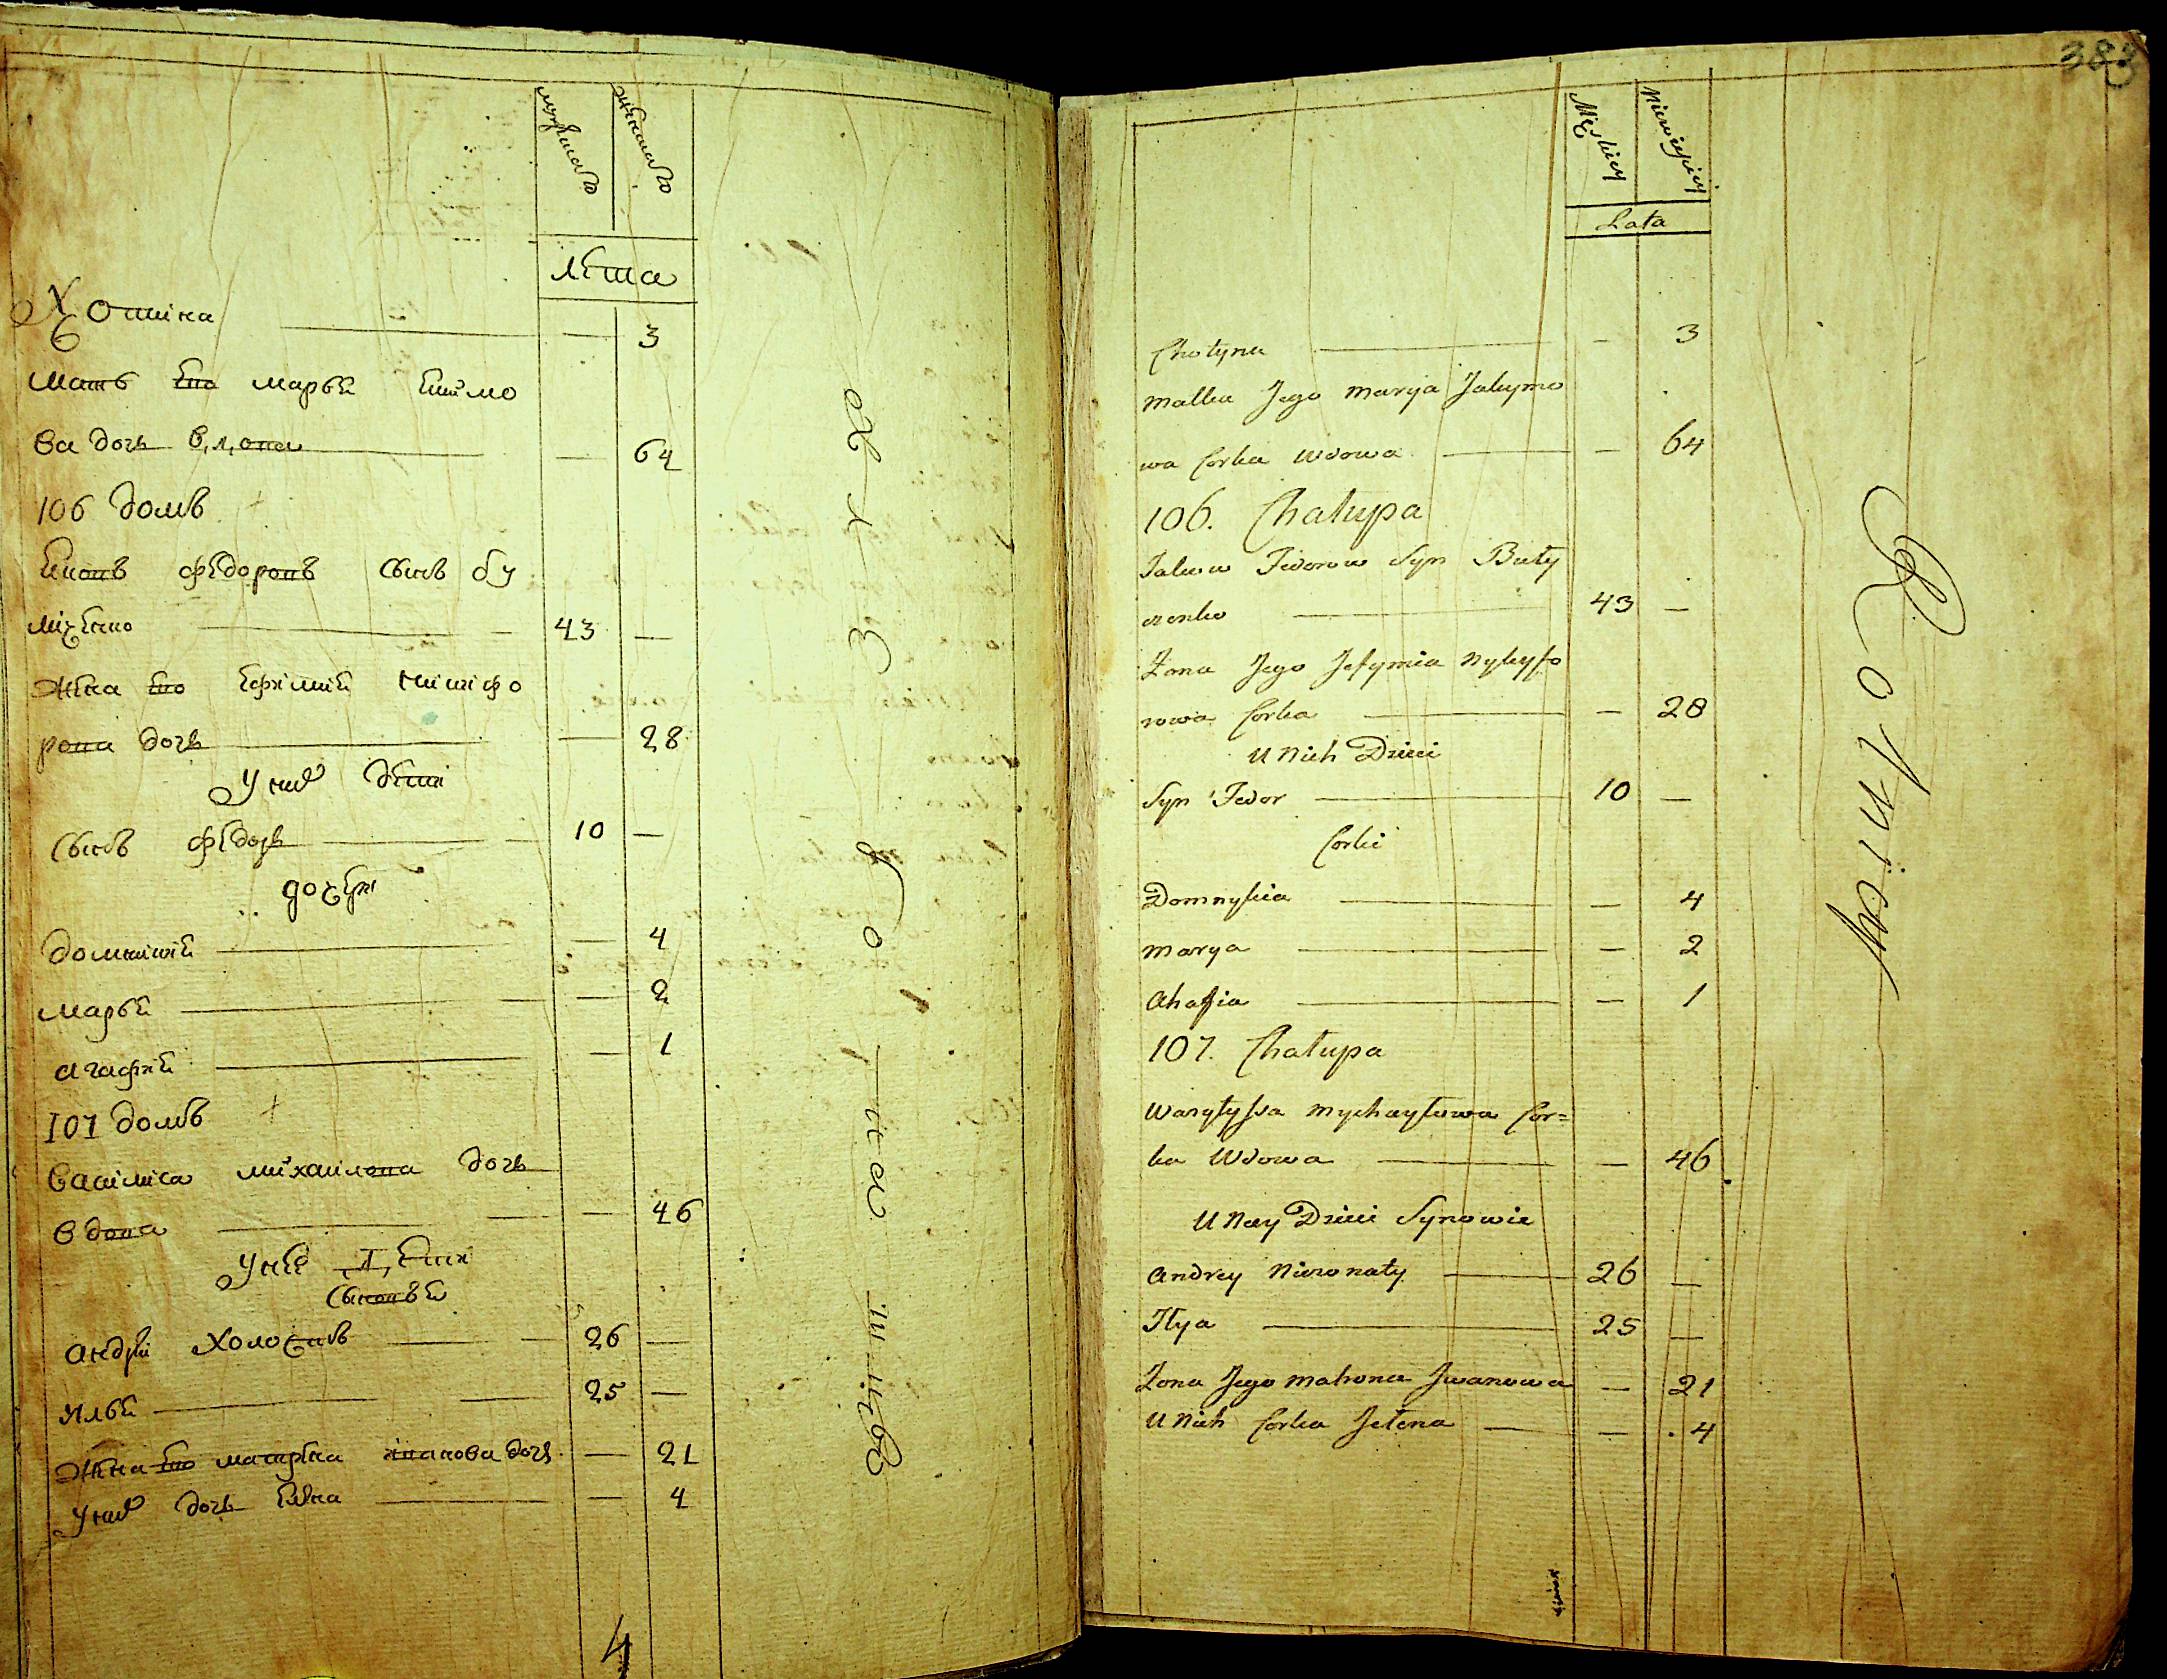 мужеска
женска
лѣта
Хотина — 3
мать его марья екимо
ва дочь вдова — 64
106 домъ
ековъ федоровъ сынъ бу
— 43 —
жена его ефимия никифо
рова дочь — 28
у них дети
сынъ федоръ — 10 —
дочери
домникия — 4
марья — 2
агафия — 1
107 домъ
василиса михайлова дочь
вдова — 46
у нее дети
сыновья
андрей холостъ — 26 —
илья — 25 —
жена его матрена иванова дочь — 21
у них дочь елена — 4
4
383
Męskiey
Niewieściey
Lata
Chotyna — 3
Matka Jego Marya Jakymo
wa Corka Wdowa — 64
106. Chałupa
Jakow Fedorow Syn Buty
— 43 —
Zona Jego Jefymia Nykyfo
rowa Corka — 28
U Nich Dzieci
Syn Fedor — 10 —
Corki
Domnykia — 4
Marya — 2
Ahafia — 1
107. Chałupa
Wasyłysa Mychayłowa Cor=
ka Wdowa — 46
U Ney Dzieci Synowie
Andrey Niezonaty — 26 —
Ilya — 25 —
Zona Jego Matrona Iwanowa — 21
U Nich Corka Jełena — 4